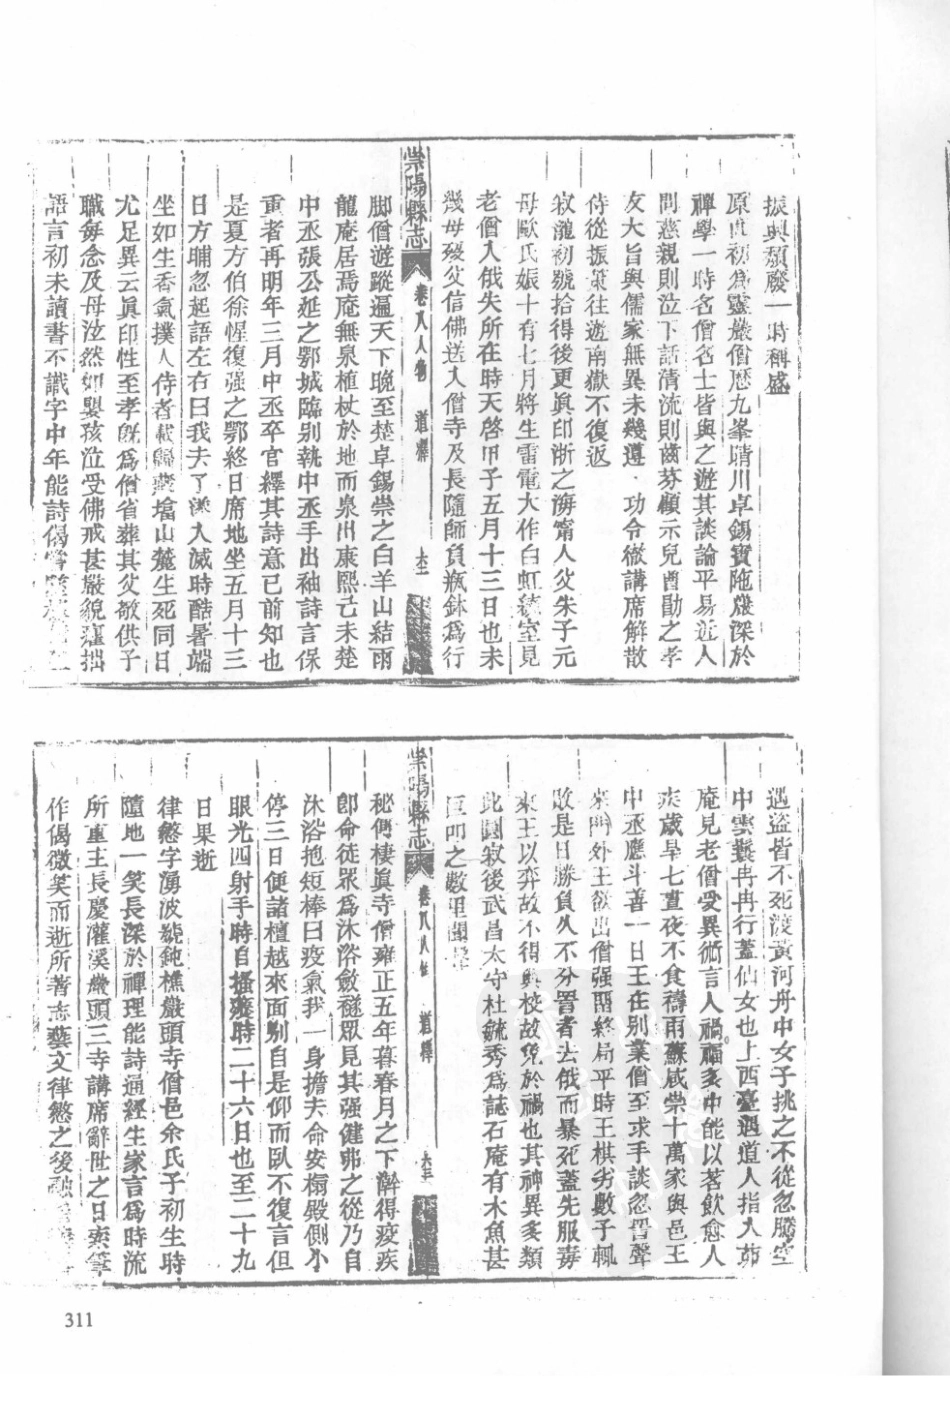 振興頹廢一時稱盛
原直初爲靈巖僧歷九峯晴川卓錫寶陁巖深於
禪學一時名僧名士皆與之遊其談論平易近人
問慈親則泣下話清流則齒芬顧示兒酉勖之孝
友大旨與儒家無異未幾遵功令徹講席解散
侍從振策往遊南嶽不復返
寂瀧初號拾得後更眞印浙之海甯人父朱子元
母歐氏娠十有七月將生雷電大作白虹繞室見
老僧入俄失所在時天啓甲子五月十三日也未
幾母歿父信佛送入僧寺及長隨師負瓶鉢爲行
崇陽縣志 卷八人物 道釋
脚僧遊蹤遍天下晚至楚卓錫崇之白羊山結雨
龍庵居焉庵無泉植杖於地而泉出康熙己未楚
中丞張公延之鄂城臨别執中丞手出袖詩言保
重者再明年三月中丞卒官繹其詩意已前知也
是夏方伯徐惺復强之鄂終日席地坐五月十三
日方晡忽起語左右曰我去了遂入滅時酷暑端
坐如生香氣撲人侍者載歸葬壋山麓生死同日
尤足異云眞印性至孝旣爲僧省葬其父敬供子
職每念及母泣然如嬰孩泣受佛戒甚嚴貌癯拙
語言初未讀書不識字中年能詩偈
遇盜皆不死渡黃河舟中女子挑之不從忽騰空
中雲鬟冉冉行蓋仙女也上西臺遇道人指入茆
庵見老僧受異術言人禍福多中能以茗飲愈人
疾歲旱七晝夜不食禱雨蘇咸崇十萬家與邑王
中丞應斗善一日王在別業僧至求手談忽晉聲
來門外王欲出僧强留終局平時王棋劣數子輒
敗是日勝負久不分詈者去俄而暴死蓋先服毒
來王以弈故不得與校故免於禍也其神異多類
此圓寂後武昌太守杜毓秀爲誌石庵有木魚甚
巨叩之數里聞聲
崇陽縣志 卷八人物 道釋
秘傳棲眞寺僧雍正五年暮春月之下澣得疫疾
卽命徒眾爲沐浴斂襚眾見其强健弗之從乃自
沐浴抱短棒曰疫氣我一身擔夫命安榻殿側小
停三日便諸檀越來面別自是仰而臥不復言但
眼光四射手時自搔癢時二十六日也至二十九
日果逝
律憨字湧波號鈍樵巖頭寺僧邑余氏子初生時
隨地一笑長深於禪理能詩通經生家言爲時流
所重主長慶灌溪巖頭三寺講席辭世之日索筆
作偈微笑而逝所著志藝文律憨之後融
311